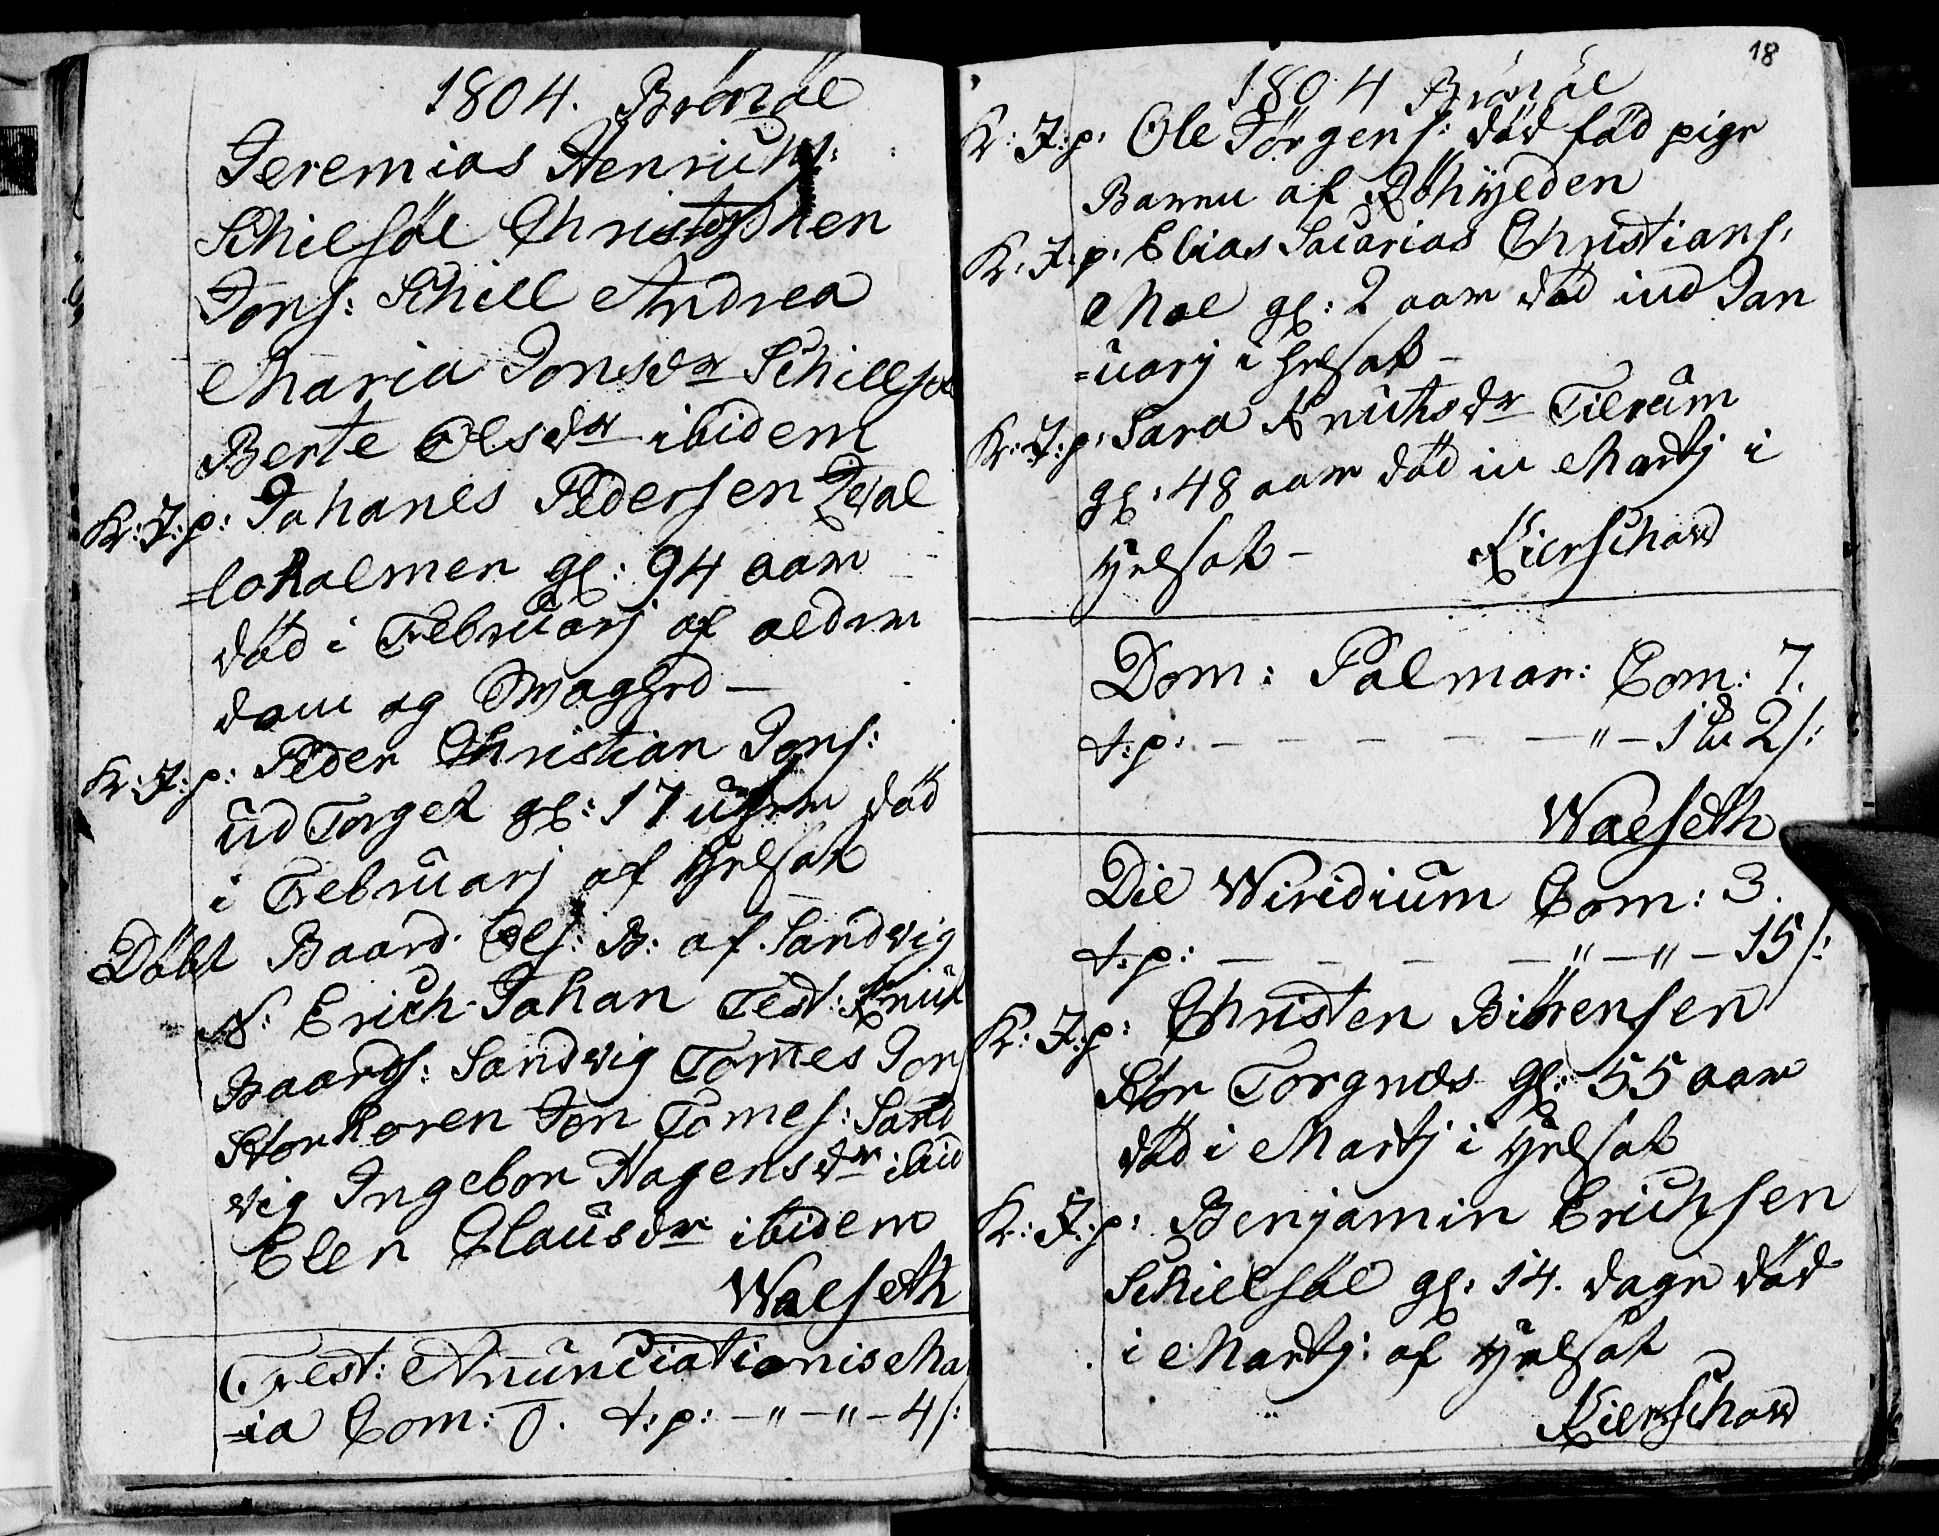 1804. Brönöe
Jeremias Henrichs:
Schielsöe Christophen
Jons: Schiell Andrea
Maria Jonsdr Schiells
Berte Olsdr ibidem
K: J: p: Johanes Pedersen Qval
=loholmen gl: 94 aar
död i Februarj af alder
dom og Svaghed -
K: J: p: Peder Christian Jons:
ud Torget gl: 17 uger död
i Februarj af Helsot
Döbt Baard Ols: B: af Sandvig
N: Erich Johan Test: Knut
Baards: Sandvig Tomes Jons
Storhoren Jon Tomes: Sand
vig Ingebor Hagensdr ibid
Elen Clausdr ibidem
Waelseth
Fest: Anunciationis Mar
=ia Com: 0. t:p: - " - " - 4 s:
18
1804 Brönöe
K: J: p: Ole Jörgens: död föd pige
Barn af Röhyeden
K: J: p: Elias Sacarias Christians:
Moe gl: 2 aar död ind Jan
=uarj i Helsot -
K: J: p: Sara Knuthsdr Tilrum
gl: 48 aar död in Martj i
Helsot - Kierschow
Dom: Palmar: Com: 7.
t:p: - - - - - " - 1 2 s:
Waelseth
Die Wiridium Com: 3.
t:p: - - - - " - " - 15 s:
K: J: p: Christen Biörensen
Stor Torgnæs gl: 55 aar
död i Martj i Helsot
K: J: p: Benjamin Erichsen
Schielsöe gl: 14. dage död
i Martj: af Helsot
Kierschow